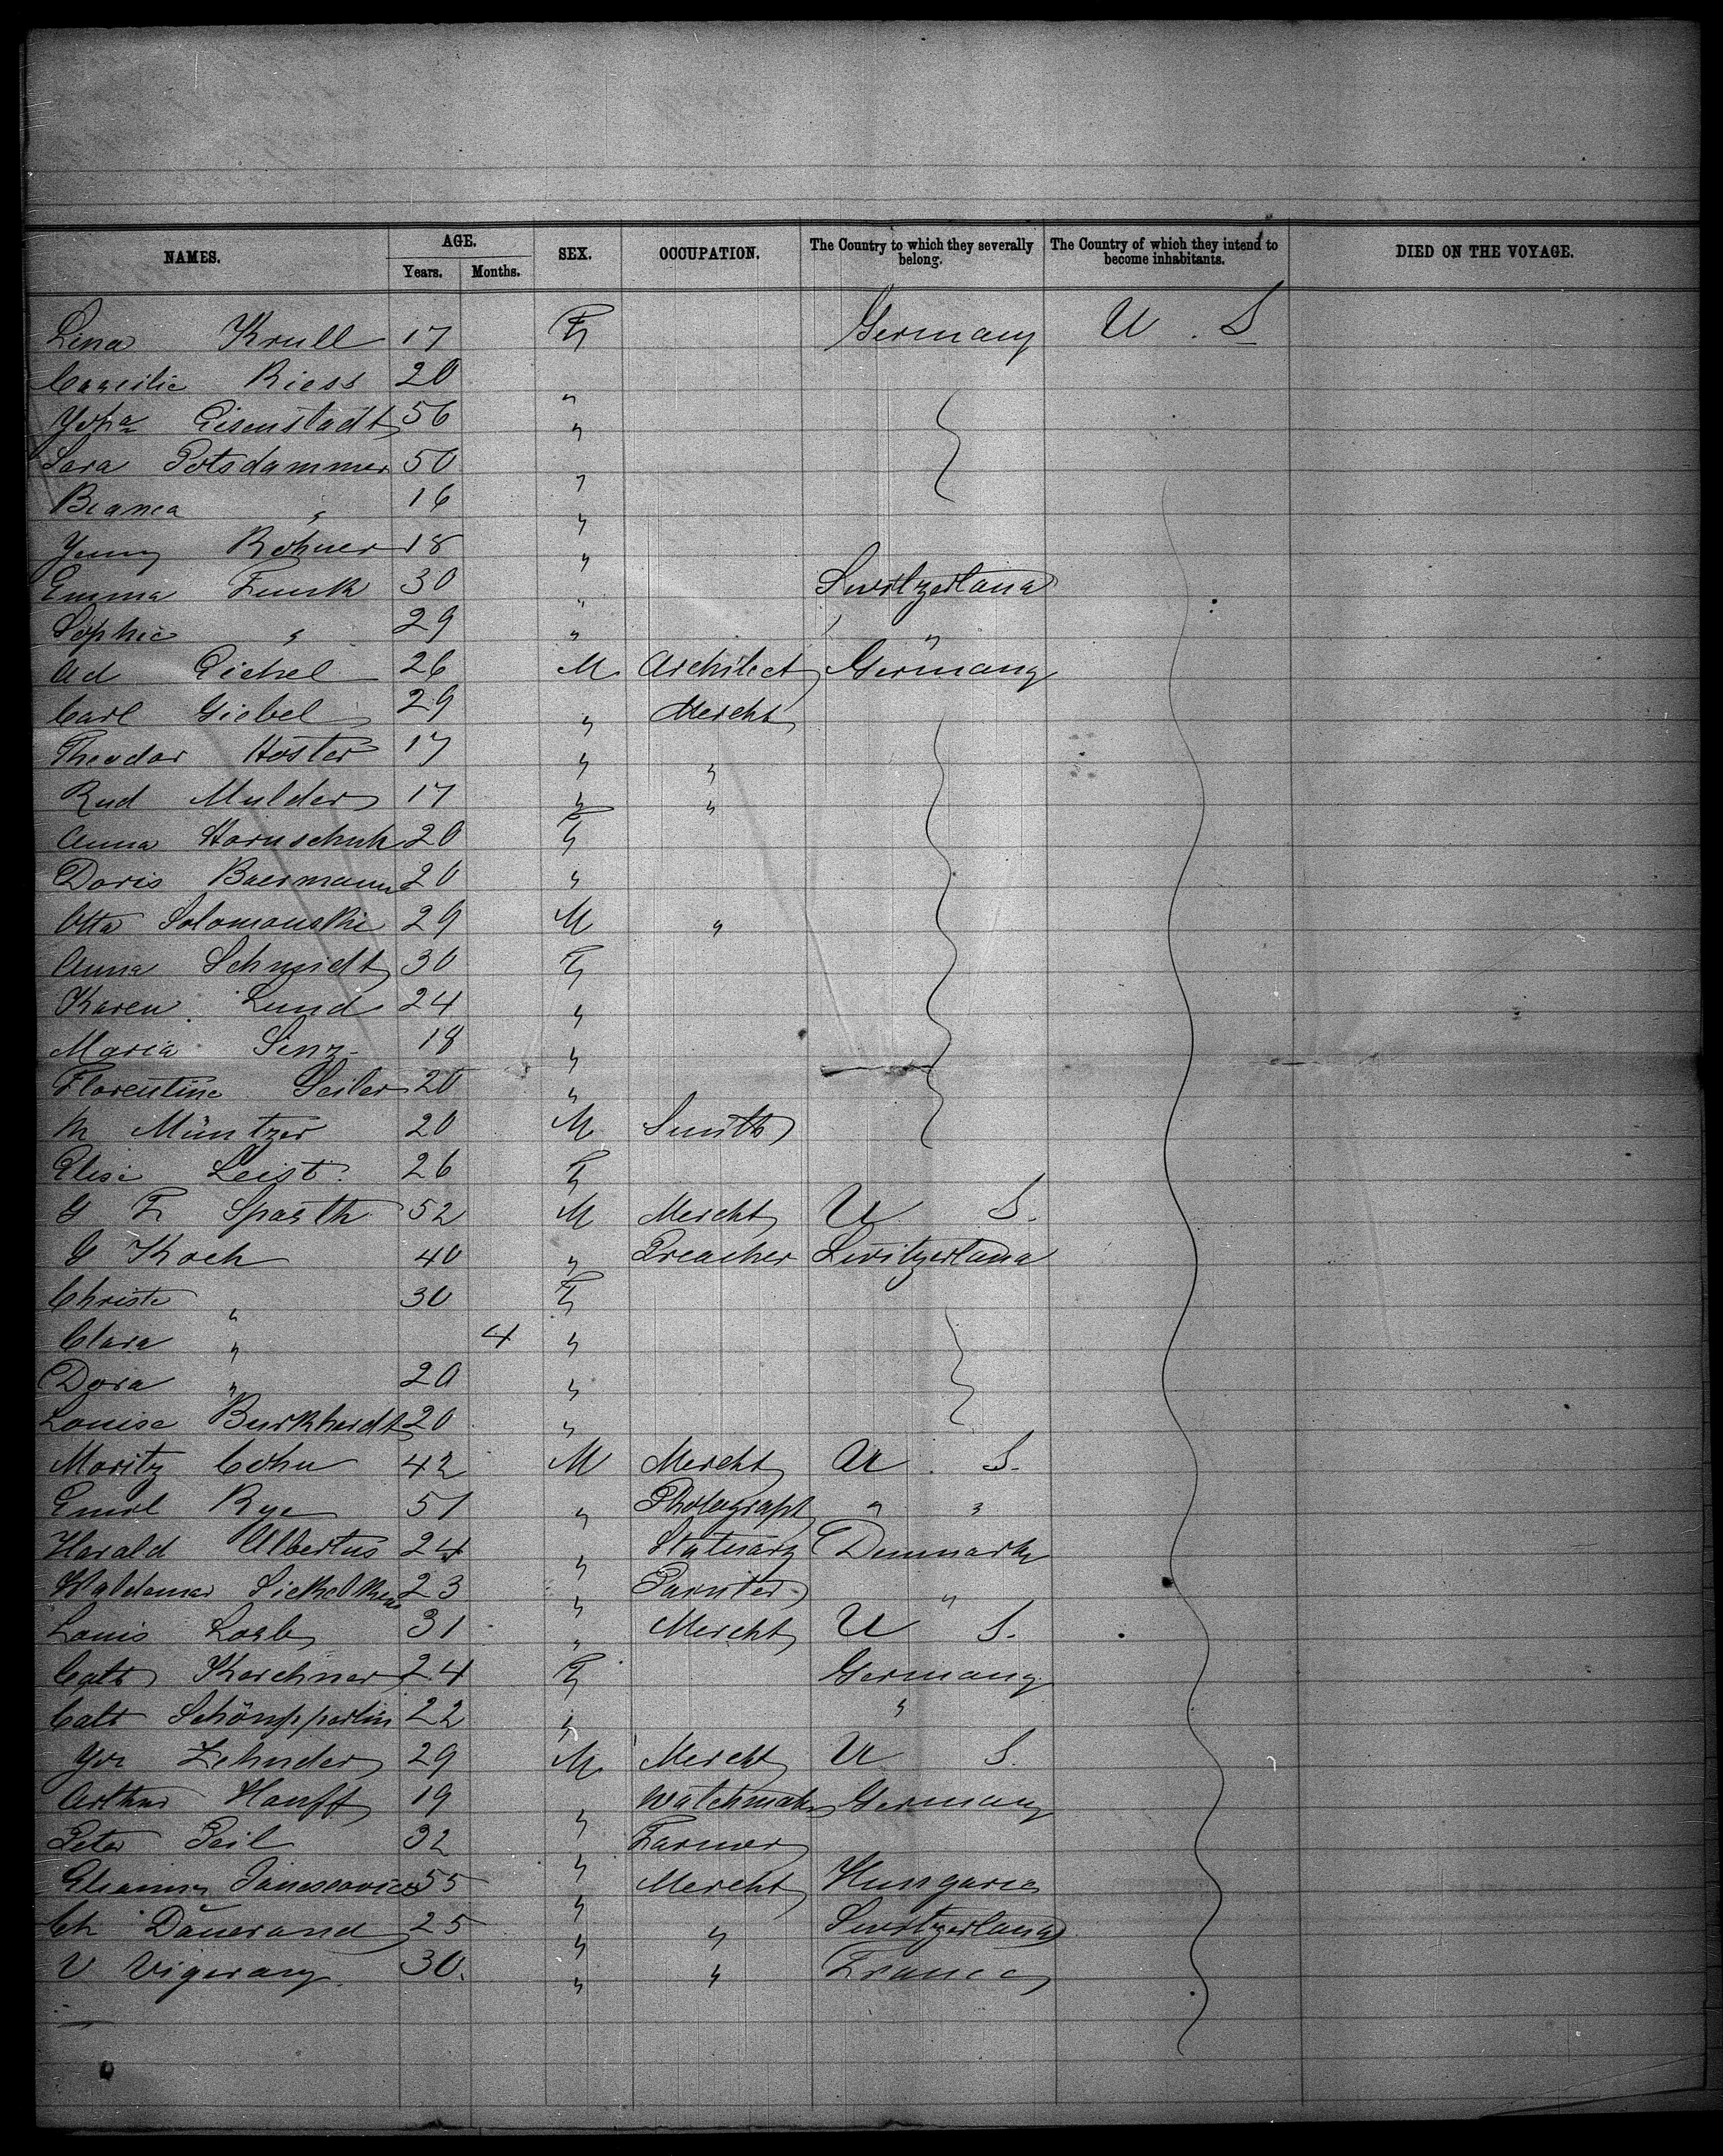 NAMES. AGE. SEX. OCCUPATION. The Country to which they severally belong. The Country of which they intend to become inhabitants. DIED ON THE VOYAGE.
Years. Months.
Lina Krull 17 F Germany U. S
Caecilie Riess 20 "
Joha Eisenstadt 56 "
Sara Potsdammer 50 "
Bianca " 16 "
Jenny Rohner 18 "
Emma Funk 30 " Switzerland
Sophie " 29 " "
Ad Eichel 26 M Architect Germany
Carl Giebel 29 " Mercht
Theodor Hoster 17 " "
Rud Mulder 17 " "
Anna Hornschuh 20 F
Doris Baermann 20 "
Otto Solomonski 29 M "
Anna Schmidt 30 F
Karen Lund 24 "
Maria Senz 18 "
Florentine Seiler 20 "
M Müntzer 20 M Smith
Elise Leist 26 F
G F Spaeth 52 M Mercht U S.
C Koch 40 " Preacher Switzerland
Christe " 30 F
Clara " 4 "
Dora " 20 "
Louise Burkhardt 20 "
Moritz Cohn 42 M Mercht U. S.
Emil Rye 51 " Photograph " "
Harald Albertus 24 " Statuary Denmark
Waldemar 23 " Painter "
Louis Loeb 31 " Mercht U S.
Cath Kerchner 24 F Germany
Cath 22 " "
Zehnder 29 M Mercht U S.
Arthur Hanff 19 " Watchmak Germany
Peter Peil 32 " Farmer
55 " Mercht Hungaria
Ch 25 " " Switzerland
V Vigerany 30. " " France